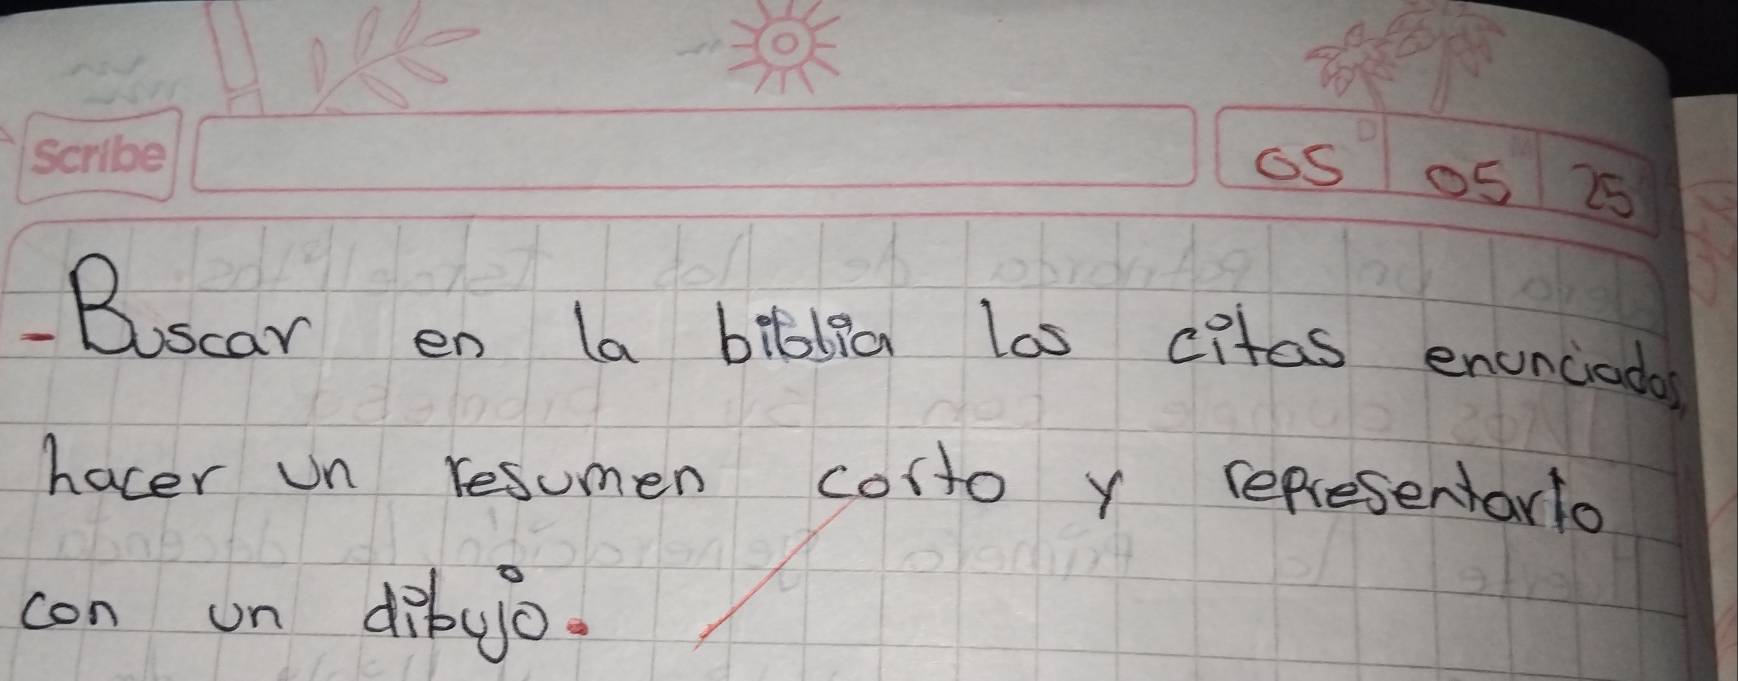 Scribe
05 05 25
- Buscar en la biblia las citas enunciadas,
hacer un resumen corto y representarlo
con un dibujo.